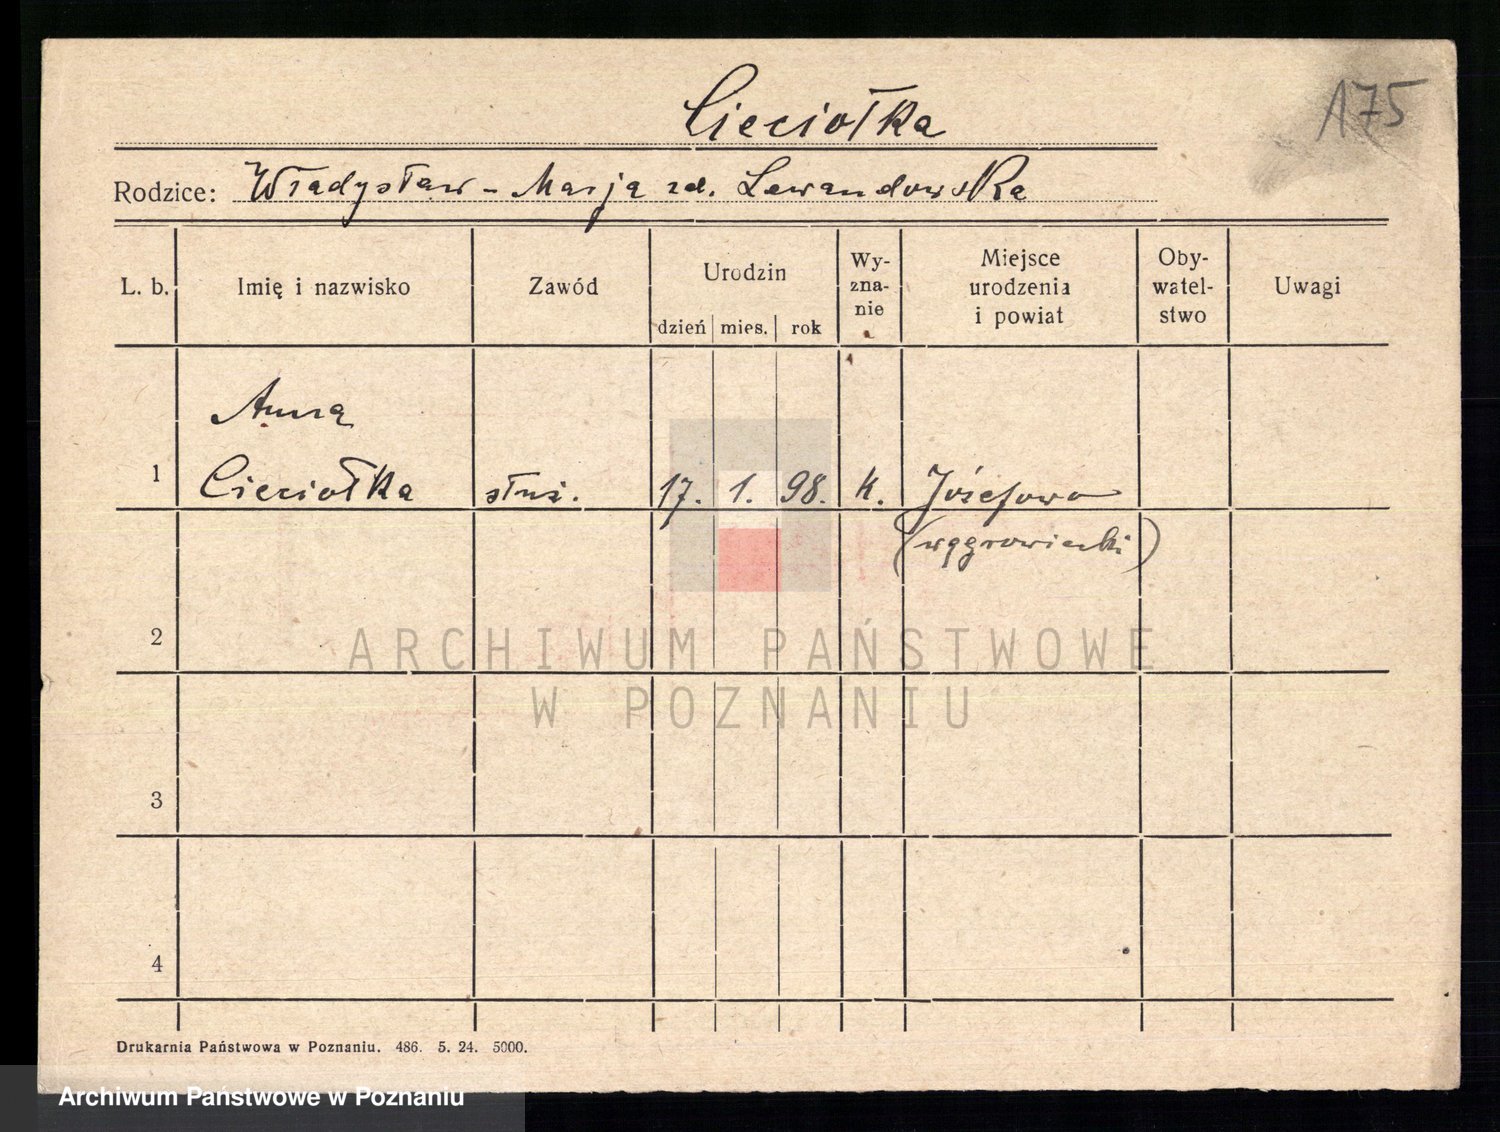 A75
Cieciołka
Rodzice: Władysław - Marja zd. Lewandowska
L. b. Imię i nazwisko Zawód Urodzin Wy- Miejsce Oby- Uwagi
zna- urodzenia watel-
nie i powiat stwo
dzień mies. rok
Anna
1 Cieciołka służ. 17. 1. 98. k. Józefowo
(wągrowiecki)
2
ARCHIWUM PAŃSTWOWE
W POZNANIU
3
4
Drukarnia Państwowa w Poznaniu. 486. 5. 24. 5000.
Archiwum Państwowe w Poznaniu